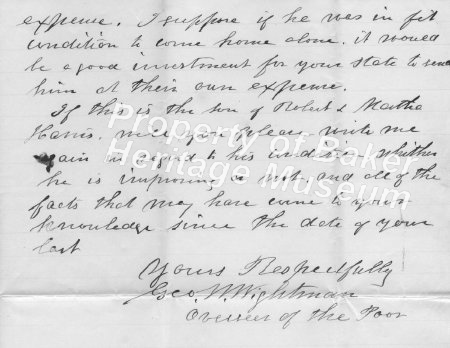 expense. I suppose if he was in fit
condition to come home alone. it would
be a good investment for your state to send
him at their own expense.
If this is the son of Robert & Martha
Harris. will you please write me
again in regard to his condition whether
he is improving or not, and all of the
facts that may have come to your
knowledge since the date of your
last
Yours Respectfully
Geo. W. Wightman
Overseer of the Poor
Property of Baker
Heritage Museum